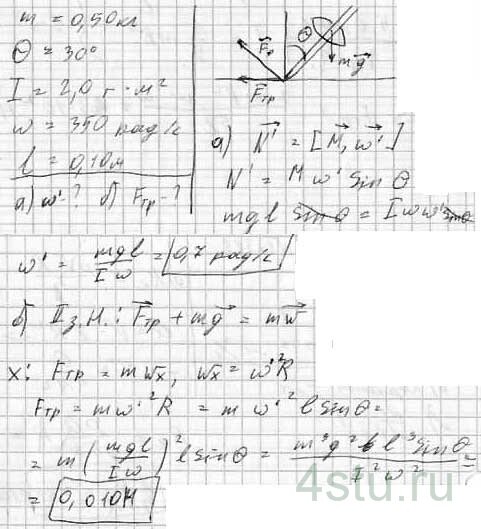 m = 0,50 кг
θ = 30°
I = 2,0 г·м²
ω = 350 рад/с
l = 0,10 м
а) ω'-? б) Fтр-?
θ
F
mg
Fтр
а) N' = [M, ω']
N' = M ω' sin θ
mgl sin θ = I ω ω' sin θ
ω' = mgl / I ω = 0,7 рад/с
б) II з.Н.: Fтр + mg = mw
x: Fтр = m wx, wx = ω'² R
Fтр = m ω'² R = m ω'² l sin θ =
= m (mgl / I ω)² l sin θ = m³ g² l³ sin θ / I² ω² =
= 0,010 Н
4stu.ru